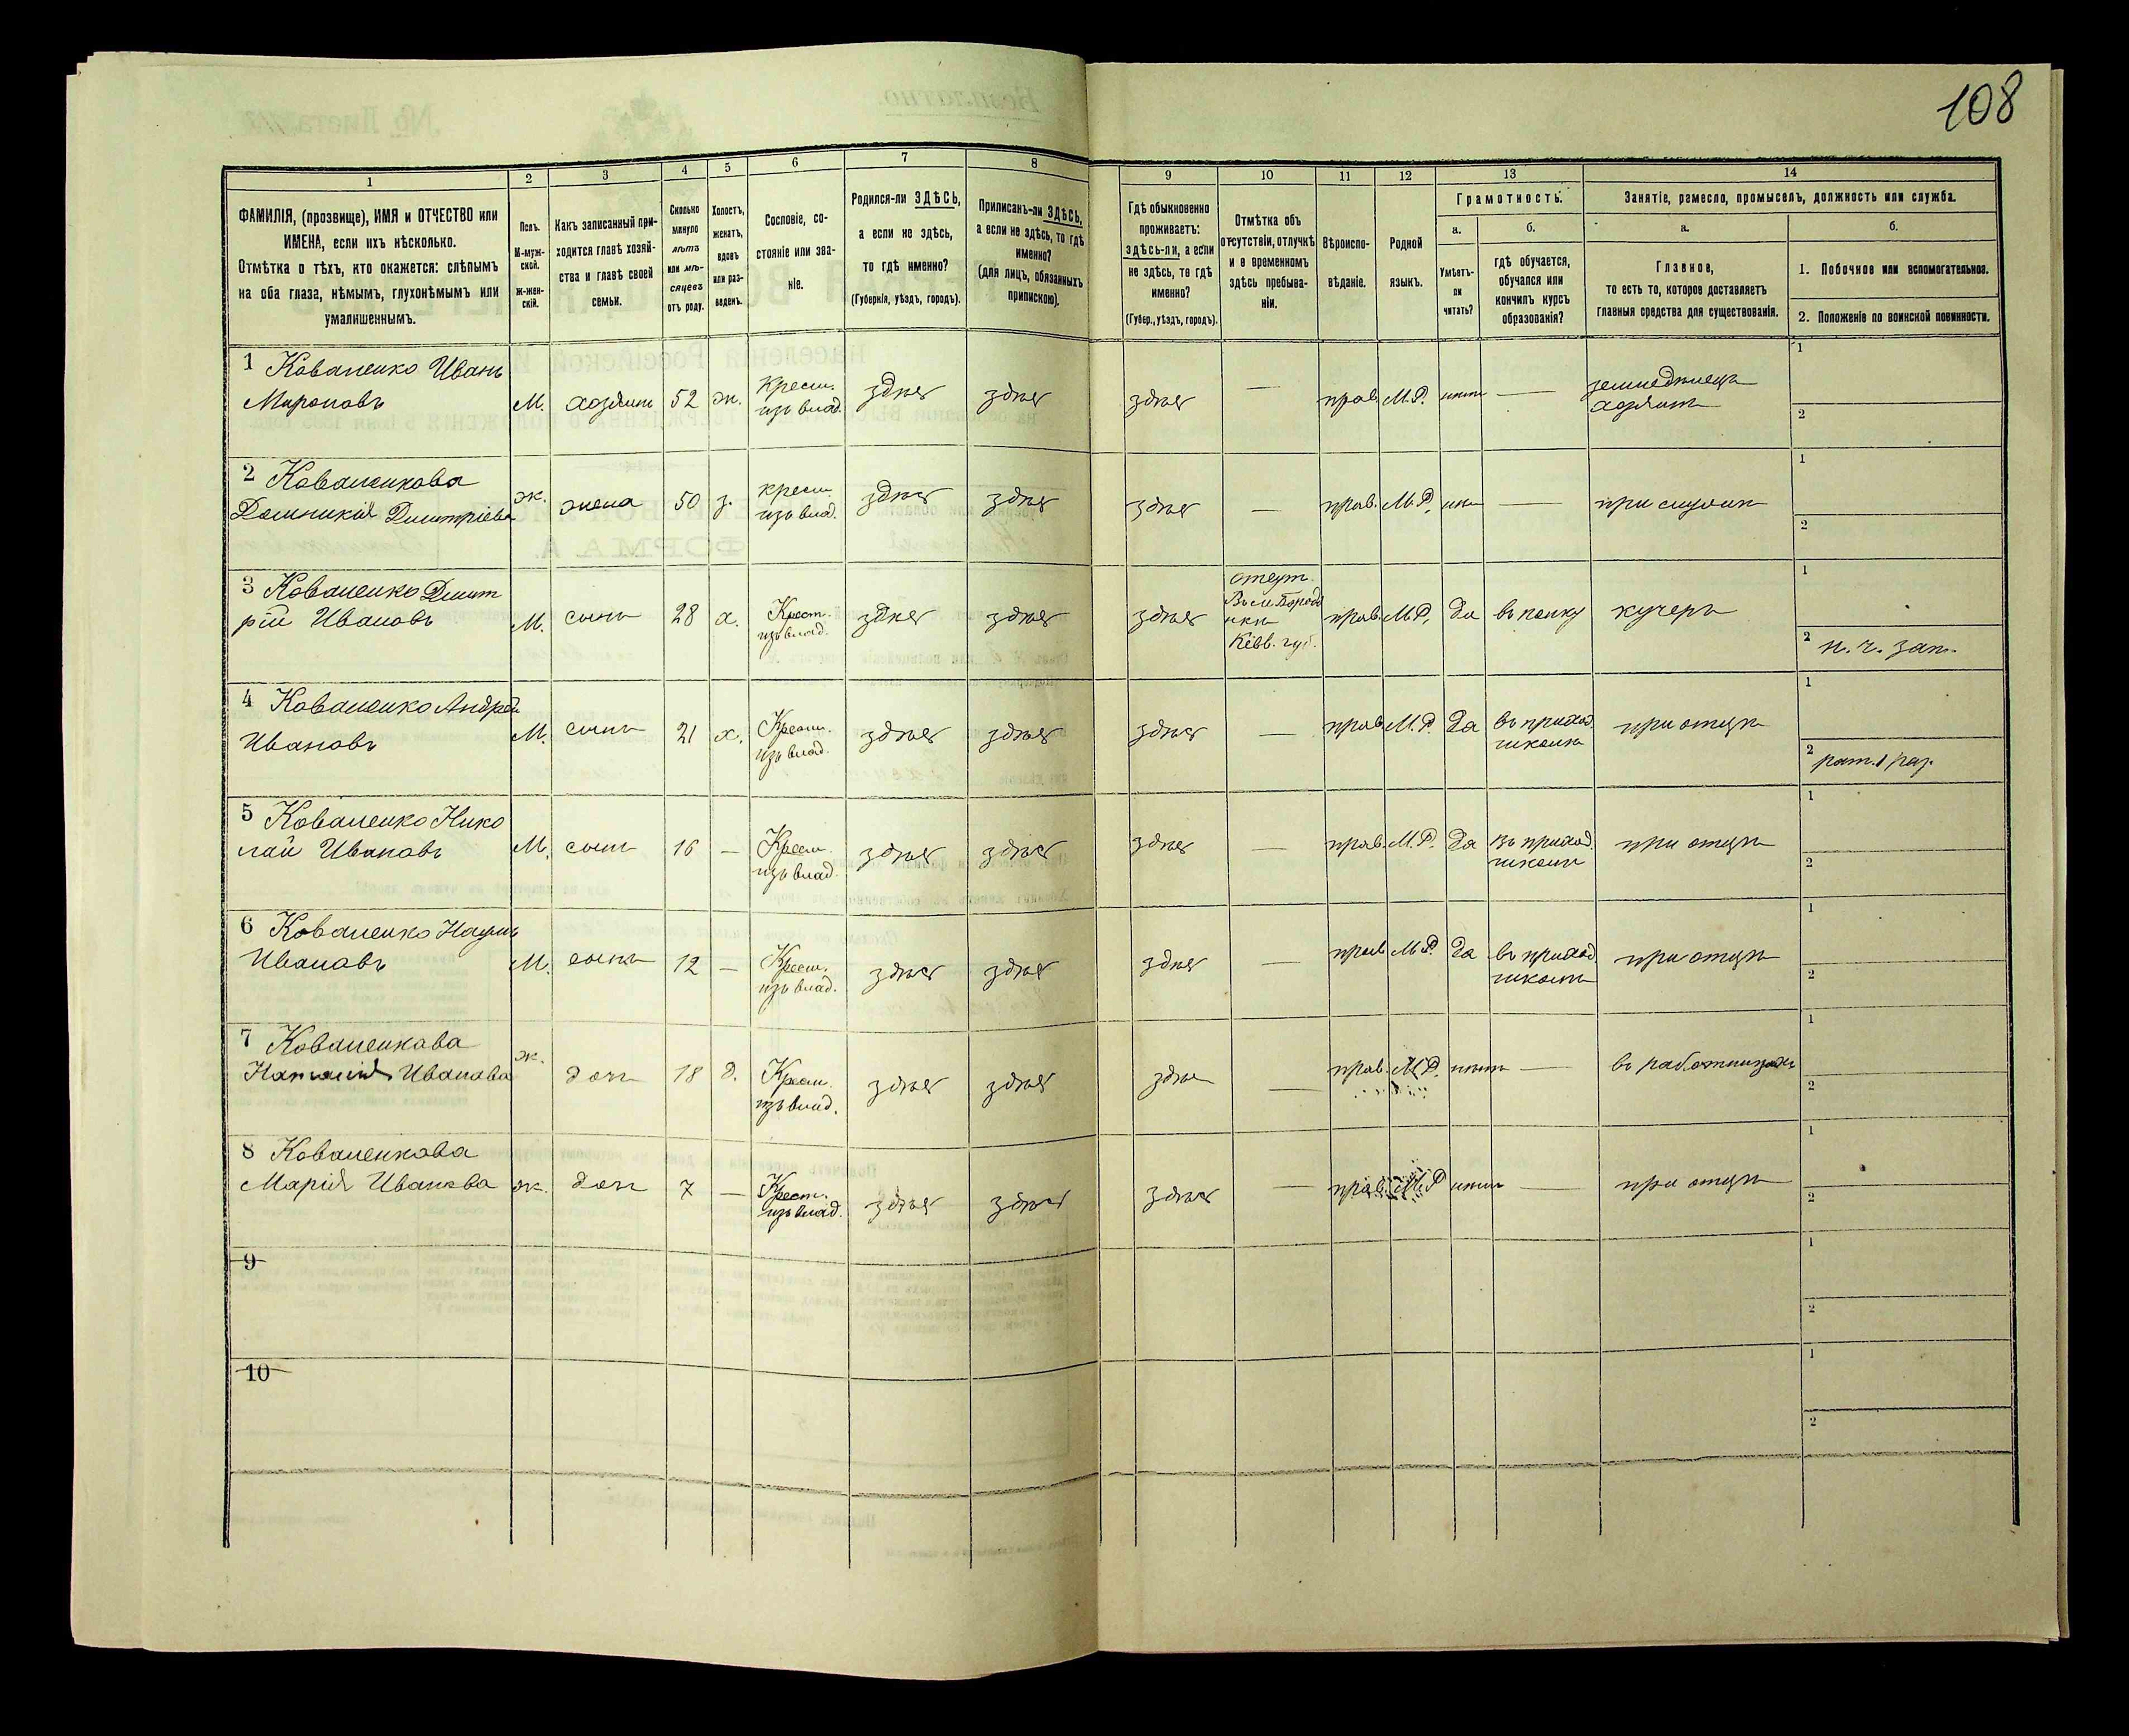 108
1
2
3
4
5
6
7
8
9
10
11
12
13
14
ФАМИЛІЯ, (прозвище), ИМЯ и ОТЧЕСТВО или
ИМЕНА, если ихъ нѣсколько.
Отмѣтка о тѣхъ, кто окажется: слѣпымъ
на оба глаза, нѣмымъ, глухонѣмымъ или
умалишеннымъ.
Полъ.
М-муж-
ской.
ж-жен-
скій.
Какъ записанный при-
ходится главѣ хозяй-
ства и главѣ своей
семьи.
Сколько
минуло
лѣтъ
или мѣ-
сяцевъ
отъ роду.
Холостъ,
женатъ,
вдовъ
или раз-
веденъ.
Сословіе, со-
стояніе или зва-
ніе.
Родился-ли ЗДѢСЬ,
а если не здѣсь,
то гдѣ именно?
(Губернія, уѣздъ, городъ).
Приписанъ-ли ЗДѢСЬ,
а если не здѣсь, то гдѣ
именно?
(для лицъ, обязанныхъ
припискою).
Гдѣ обыкновенно
проживаетъ:
здѣсь-ли, а если
не здѣсь, то гдѣ
именно?
(Губер., уѣздъ, городъ).
Отмѣтка объ
отсутствіи, отлучкѣ
и о временномъ
здѣсь пребыва-
ніи.
Вѣроиспо-
вѣданіе.
Родной
языкъ.
Грамотность.
а.
Умѣетъ-
ли
читать?
б.
гдѣ обучается,
обучался или
кончилъ курсъ
образованія?
Занятіе, ремесло, промыселъ, должность или служба.
а.
Главное,
то есть то, которое доставляетъ
главныя средства для существованія.
б.
1. Побочное или вспомогательное.
2. Положеніе по воинской повинности.
1 Коваленко Иванъ
Мироновъ
М. хозяинъ 52 ж. Крест. изъ влад. здѣсь здѣсь здѣсь — прав. М.Р. нѣтъ — земледѣлецъ хозяинъ
1
2
2 Коваленкова
Домникія Дмитріева
ж. жена 50 з. крест. изъ влад. здѣсь здѣсь здѣсь — прав. М.Р. нѣтъ — при
1
2
3 Коваленко Дмит
рій Ивановъ
М. сынъ 28 х. Крест. изъ влад. здѣсь здѣсь здѣсь отсут. Кіев. губ. прав. М.Р. да въ полку кучеръ
1
2 н. ч. зап.
4 Коваленко Андрей
Ивановъ
М. сынъ 21 х. Крест. изъ влад. здѣсь здѣсь здѣсь — прав. М.Р. да въ приход. школѣ при отцѣ
1
2 рат. 1 раз.
5 Коваленко Нико
лай Ивановъ
М. сынъ 16 — Крест. изъ влад. здѣсь здѣсь здѣсь — прав. М.Р. да въ приход. школѣ при отцѣ
1
2
6 Коваленко Наумъ
Ивановъ
М. сынъ 12 — Крест. изъ влад. здѣсь здѣсь здѣсь — прав. М.Р. да въ приход. школѣ при отцѣ
1
2
7 Коваленкова
Наталія Иванова
ж. дочь 18 д. Крест. изъ влад. здѣсь здѣсь здѣсь — прав. М.Р. нѣтъ — въ работницахъ
1
2
8 Коваленкова
Марія Иванова
ж. дочь 7 — Крест. изъ влад. здѣсь здѣсь здѣсь — прав. М.Р. нѣтъ — при отцѣ
1
2
9
1
2
10
1
2